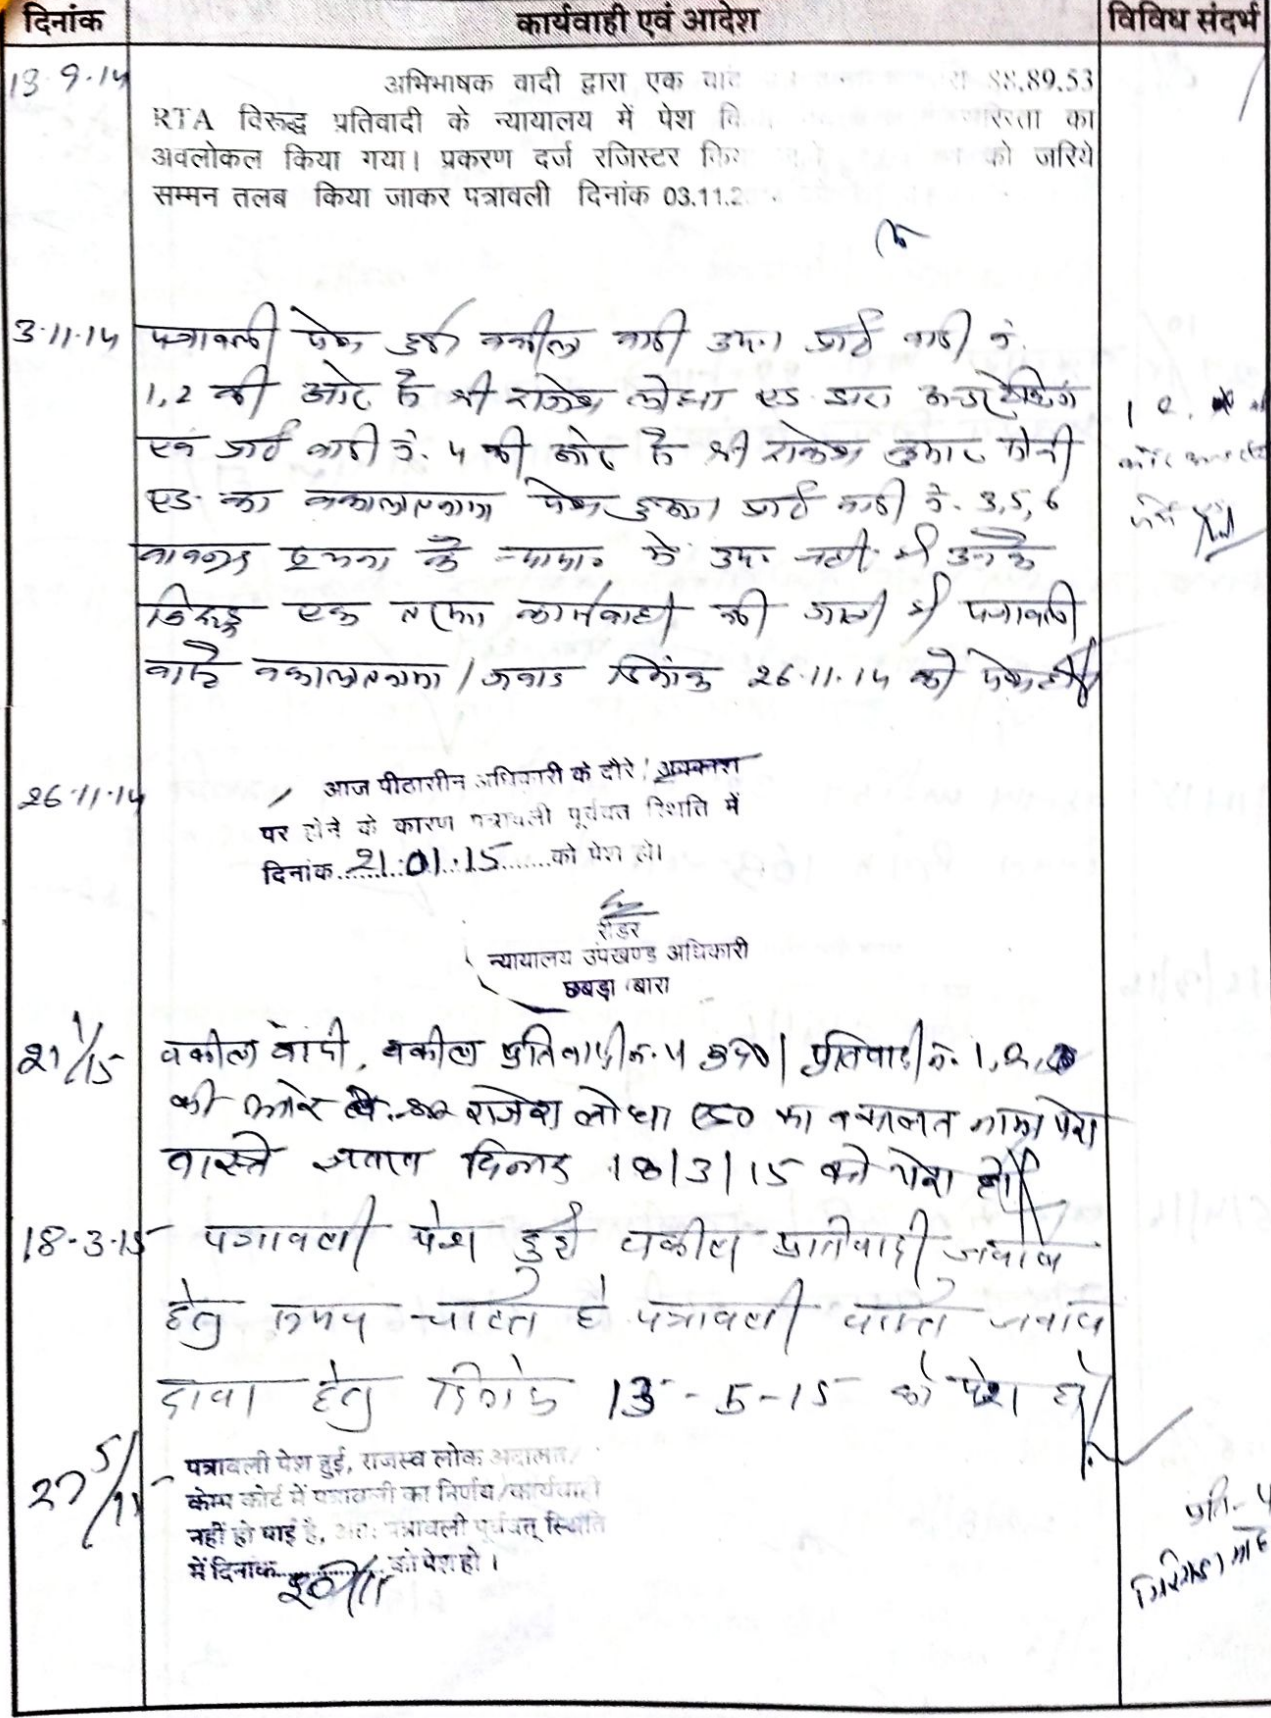 दिनांक कार्यवाही एवं आदेश विविध संदर्भ
13.9.14 अभिभाषक वादी द्वारा एक वाद 88,89,53
RTA विरूद्ध प्रतिवादी के न्यायालय में पेश का
अवलोकल किया गया। प्रकरण दर्ज रजिस्टर को जरिये
सम्मन तलब किया जाकर पत्रावली दिनांक 03.11.2
3.11.14 पत्रावली पेश हुई। वकील वादी उप.।
1,2 की ओर से श्री राजेश लोधा एड द्वारा अन्डरटेकिंग
एवं 4 की ओर से श्री राकेश कुमार सोनी
एड. का वकालतनामा पेश हुआ। 3,5,6
बावजूद सूचना के न्याया. में उप. नहीं है। उनके
विरूद्ध एक तरफा कार्यवाही की जाती है। पत्रावली
वास्ते वकालतनामा / जवाब दिनांक 26.11.14 को पेश हो।
26.11.14 आज पीठासीन अधिकारी के दौरे / अवकाश
पर होने के कारण पत्रावली पूर्ववत स्थिति में
दिनांक 21.01.15 को पेश हो।
रीडर
न्यायालय उपखण्ड अधिकारी
छबड़ा बारा
21/1/15 वकील वादी, वकील प्रतिवादी नं. 4 उप0। प्रतिवादी नं. 1,2
की ओर से राजेश लोधा एड0 का वकालत नामा पेश
वास्ते जवाब दिनांक 18/3/15 को पेश हो।
18-3-15 पत्रावली पेश हुई वकील प्रतिवादी जवाब
हेतु समय चाहते है पत्रावली वास्ते जवाब
दावा हेतु दिनांक 13-5-15 को पेश हो।
पत्रावली पेश हुई, राजस्व लोक अदालत/
केम्प कोर्ट में पत्रावली का निर्णय/कार्यवाही
नहीं हो पाई है, अतः पत्रावली पूर्ववत् स्थिति
में दिनांक को पेश हो।